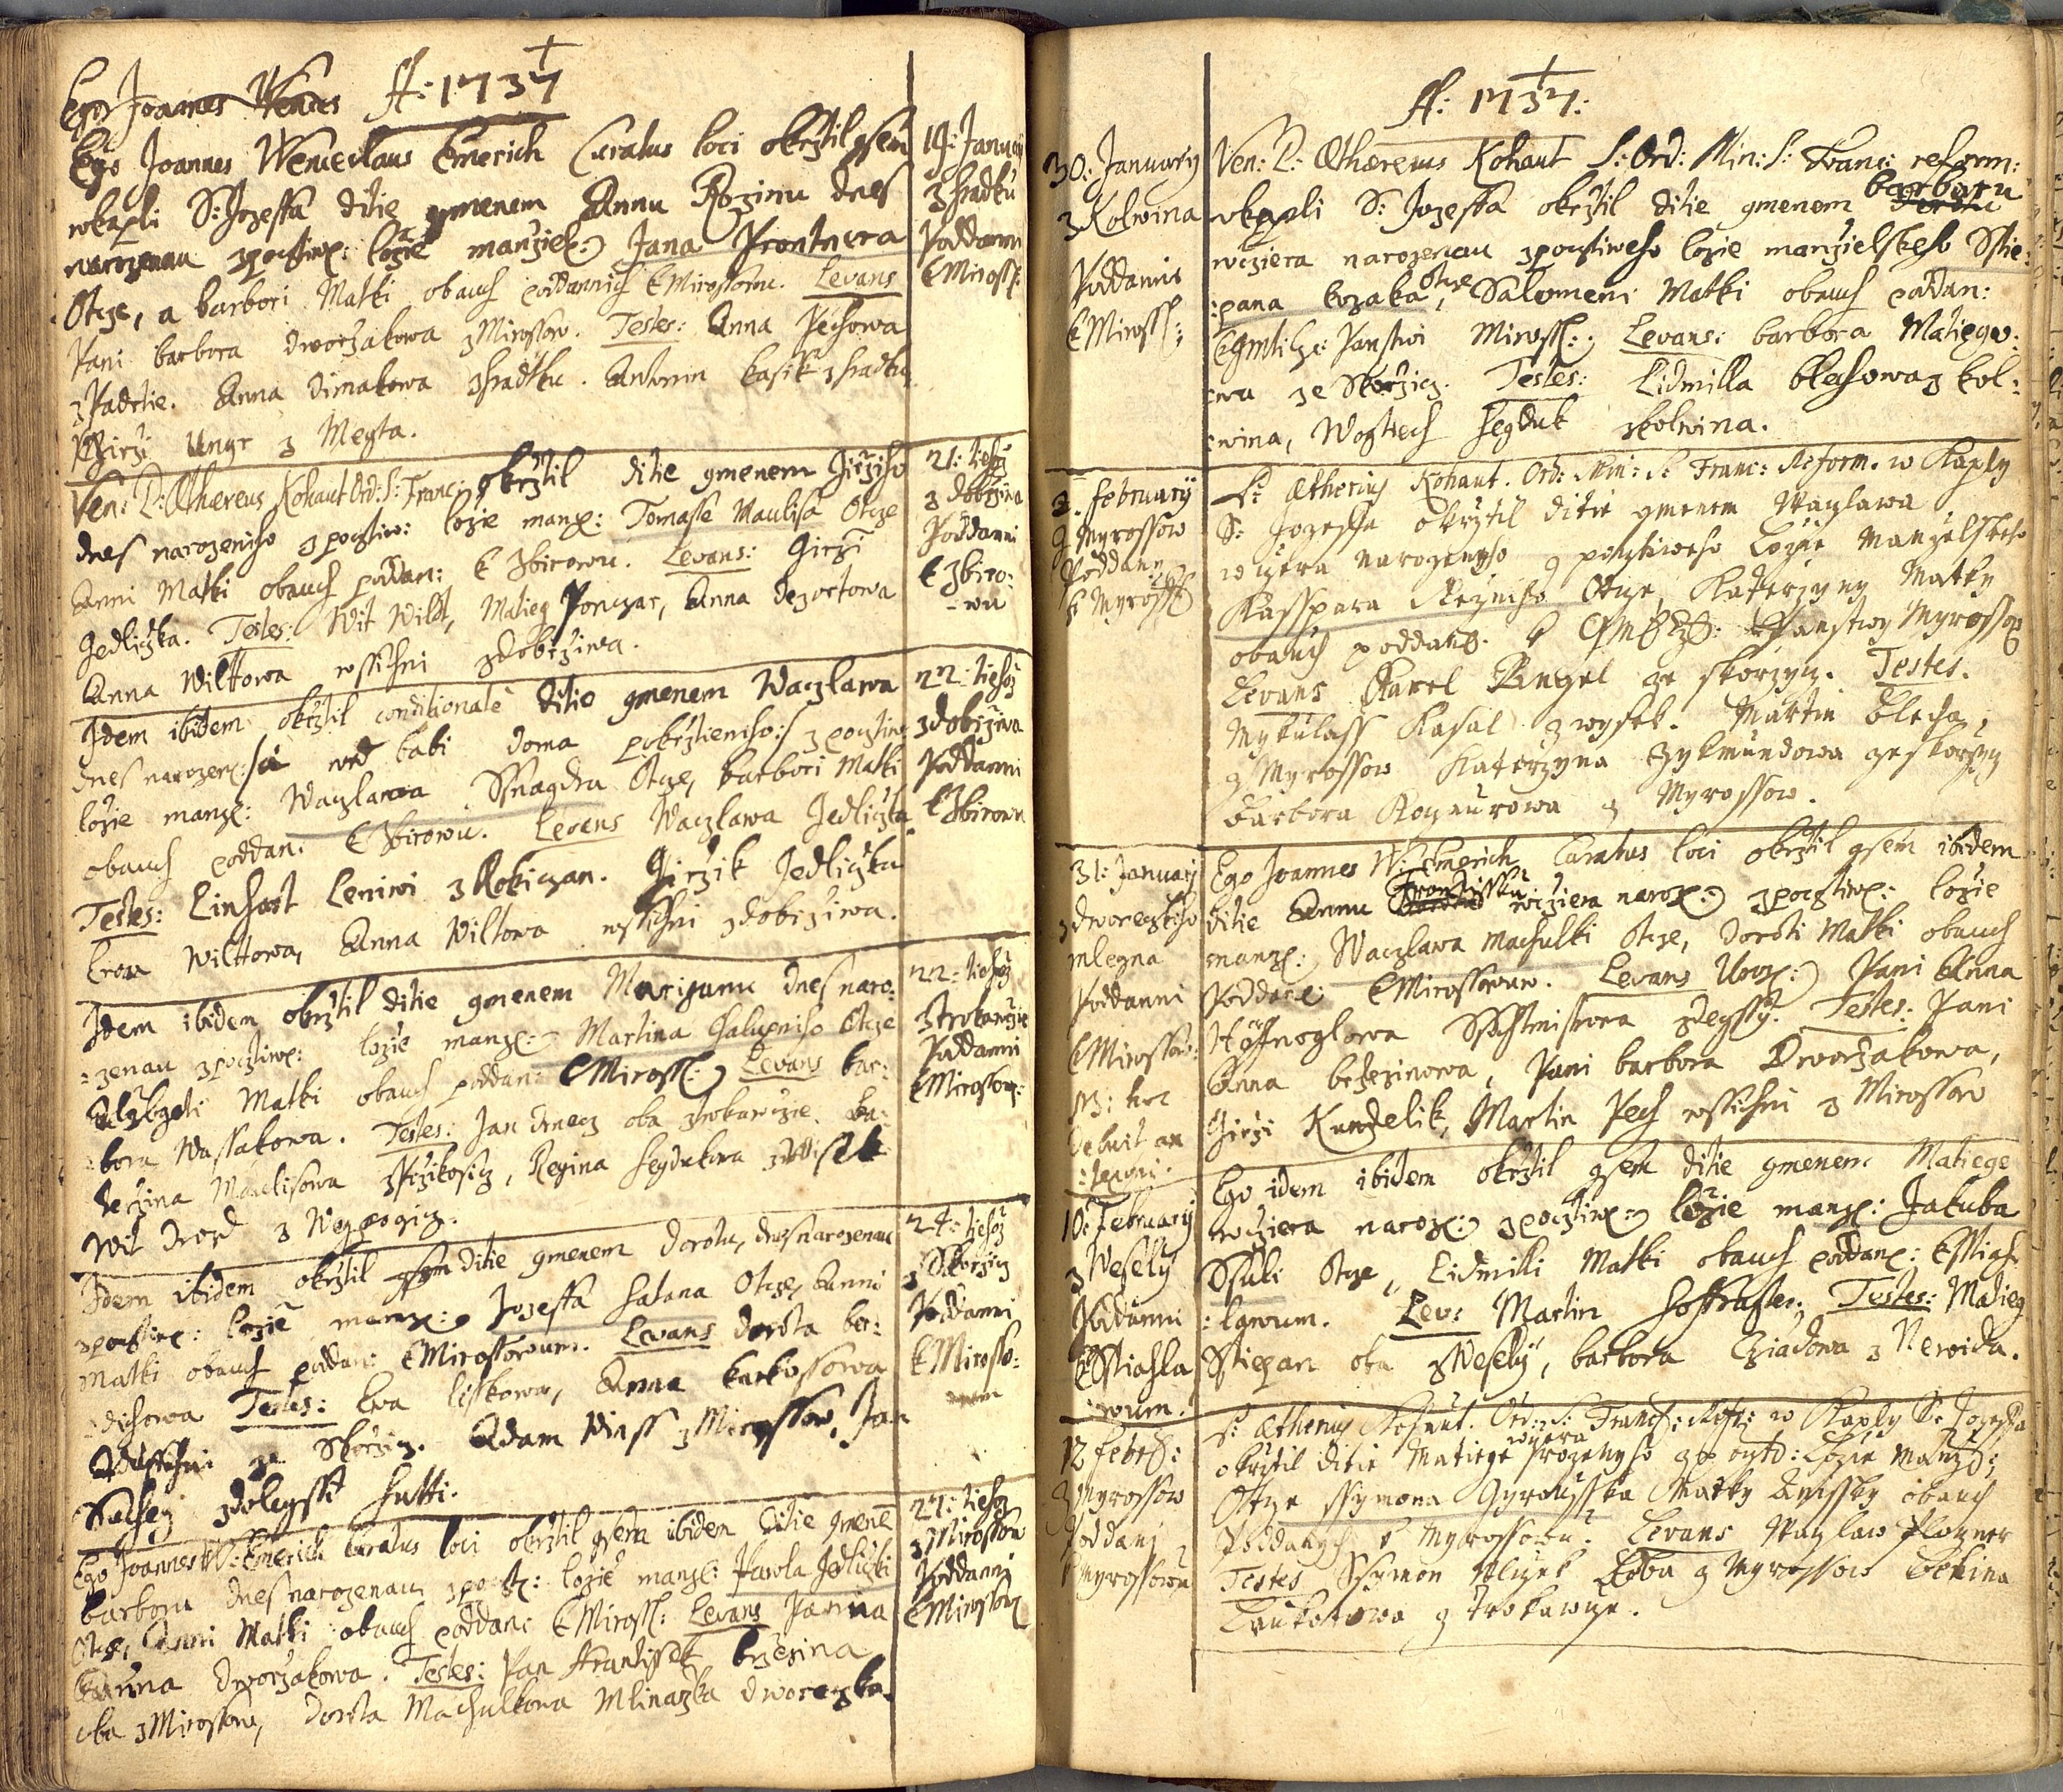 Ego Joannes Wences A: 1737
Ego Joannes Wenceslaus Emerich Curatus loci okrztil gsem
wkapli S: Jozeffa ditie gmenem Annu Rozinu dnes
narozenau zpocztiw: lozie manziel: Jana Prontnera
Otcze, a barbori Matki obauch poddannich k Mirossowu. Levans
Pani barbora dworzakowa z Mirossow. Testes: Anna Pechowa
z Padrtie. Anna dimakowa z hradku. Antonin kasik z hradku
Girzi Ungr z Meyta.
19: January
z hradku
Poddanni
k Miross:
Ven: P: Æthereus Kohaut Ord: S: Franc: okrztil ditie gmenem Girziho
dnes narozeniho z pocztiw: lozie manz: Tomasse Maulisa Otcze
Anni Matki obauch poddan: k Zbirowu. Levans: Girzi
Jedliczka. Testes: Wit Wildt, Matieg Ponczar, Anna dezortowa
Anna Wiltowa wssichni z dobrziwa.
21: tiehoz
z dobrziwa
Poddanni
k Zbiro:
-wu
Idem ibidem okrztil conditionate ditie gmenem Waczlawa
dnes narozen: /a wed babi doma pokrztieniho:/ z pocztiw
lozie manz: Waczlawa Ssnagdra Otcze, barbori Matki
obauch poddan: k Zbirowu. Levans Waczlawa Jedliczka
Testes: Linhart Leniwi z Rokiczan. Girzik Jedliczka
Ewa Wilttowa, Anna Wiltowa wssichni z dobrziwa.
22: tiehoz
z dobrziwa
Poddanni
k Zbirowu
Idem ibidem okrztil ditie gmenem Marzianu dnes naro:
:zenau z pocztiw: lozie manz: Martina Chalupniho Otcze
Alzbieti Matki obauch poddan: k Miross: Levans bar:
:bora Wassakowa. Testes: Jan drnecz oba z trokawcze. Ka:
terzina Maulisowa z Przikosicz, Regina hegdukowa
Wit Drozd z
22: tiehoz
z trokawcze
Poddanni
k Mirossow:
Idem ibidem okrztil gsem ditie gmenem dorotu, dnes narozenau
z pocztiw: lozie manz: Jozeffa hatana Otcze, Anni
Matki obauch poddan: k Mirossowu. Levans dorota ber:
:dichowa Testes: Ewa liskowa, Anna karkossowa
wssichni ze Skorzicz. Adam Winss z Mirossow, Jan
z dolegssi hutti.
24: tiehoz
z Skorzicz
Poddanni
k Mirosso:
Ego Joannes W: Emerich Curatus loci okrztil gsem ibidem ditie gmene
barboru dnes narozenau z pocz: lozie manz: Karola Jedliczki
Otcze, Anni Matki obauch poddan: k Miross: Levans Panna
Anna dworzakowa. Testes: Pan Frantissek brzezina
oba z Mirossow, dorota Machulkowa Mlinarzka dworeczka.
27: tiehoz
z Mirossow
Poddanni
k Mirossow
A: 1737:
30: January
z Kolwina
Poddanni
k Miross:
Ven: P: Æthereus Kohaut S: Ord: Min: S: Franc: reform:
wkapli S: Jozeffa okrztil ditie gmenem barboru
wcziera narozenau z pocztiweho lozie manzielskeho Stie:
:pana kozaka Otcze, Salomeni Matki obauch poddan:
Panstwi Miross: Levans: barbora Matiego:
:wa ze Skorzicz. Testes: Lidmilla blechowa z kol:
:wina, Wogtiech hegduk z kolwina.
2. February
z Myrossow
Poddany
k Myross
P: Ætherius Kohaut. Ord: Min: S: Franc: Reform. w Kaply
S: Jozeffa okrztil ditie gmenem Waczlawa
wczera narozenyho z pocztiweho Lozie Manzelskeho
Kasspara Rezniho Otcze, Katerzyny Matky
obauch poddan: k Panstwy Myrossow
Levans Karel Angel ze skorzycz. Testes.
Mykulass Kasal z wysek. Martin Blecha,
z Myrossow Katerzyna Zykmundowa ze skorzycz
Barbora Rognurowa z Myrossow.
31: January
z dworeczkiho
mlegna
Poddanni
k Mirossow:
Ego Joannes W: Emerich Curatus loci okrztil gsem ibidem
ditie Annu Frantissku wcziera naroz: z pocztiw: lozie
manz: Waczlawa Machulki Otcze, doroti Matki obauch
Poddan: k Mirossowu. Levans Uroz: Pani Anna
Testes: Pani
Anna brzezinowa, Pani barbora Dworzakowa,
Girzi Kunzelik, Martin Pech wssichni z Mirossow
10: February
z Wesely
Poddanni
k Stiahla
:wum.
Ego idem ibidem okrztil gsem ditie gmenem Matiege
wcziera naroz: z pocztiw: lozie manz: Jakuba
Ssuli Otcze, Lidmilli Matki obauch poddan: k Stiah
:lawum. Lev: Martin hoffmister. Testes: Matieg
Stiepan oba z Wesely, barbora Cziadowa z Newida.
12 Febr:
z Myrossow
Poddani
k Myrossowu
P: Ætherius Kohaut. Ord: S: Franc: Ref: w Kaply S: Jozeffa
okrztil ditie Matiege wczera narozenyho z poczt: Lozie Manz:
Otcze Ssymona Gyrousska Matky Anissky obauch
Poddanych k Myrossowu. Levans Waczlaw Plozner
Testes Ssymon Kliczek Oba z Myrossow
z Trokawcze.